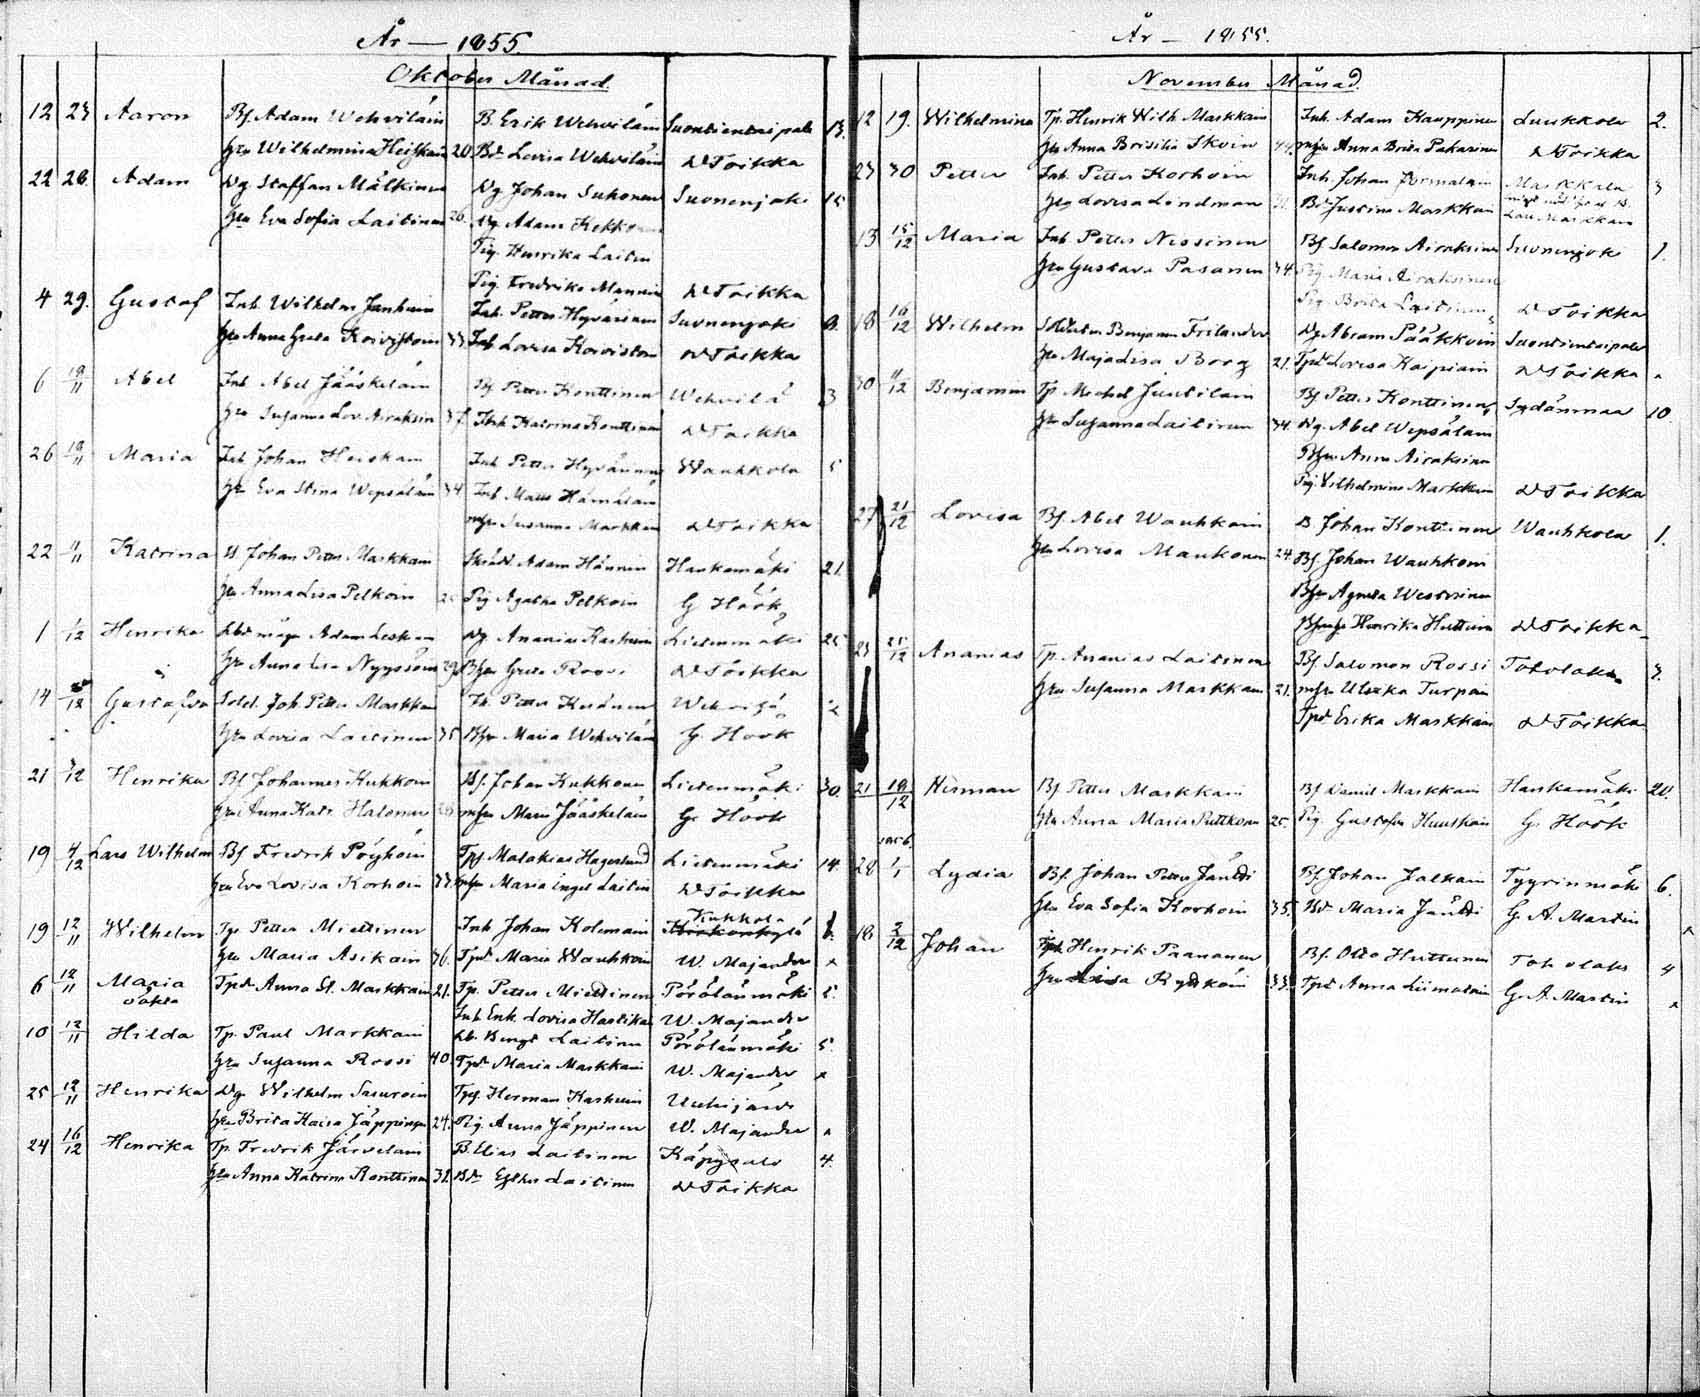 År — 1855.
Oktober Månad.
12 23 Aaron Bf. Adam Wehviläin B. Erik Wehviläin Suontientaipale 13.
Hru Wilhelmina Heiskain 20. Bd Lovisa Wehviläin Toikka
22 28. Adam Dg Staffan Mälkinen Dg Johan Suhonen Suonenjoki 15
Hru Eva Sofia Laitinen 26. Dg. Adam
Pig. Henrika Laitin
Pig. Fredrika Toikka
4 29. Gustaf Inh. Wilhelm Janhuin Inh. Petter Hyvärinen Suonenjoki
Hru Anna Greta Koivistoin 33 Inh Lovisa Koivistoin Toikka
6 Abel Inh Abel Jääskeläin Petter Konttinen Wehvilä 3
Hru Susanna Lov. Airaksin Katrina Konttinen Toikka
26 Maria Inh Johan Heiskain Inh Petter Hyvärinen Wauhkola 5
Hru Eva Stina Wepsäläin 34. Inh Matts Hämäläin
Susanna Markkain Toikka
22 Katrina Johan Petter Markkain Adam Hännin Hankamäki 21.
Hru Anna Lisa Pelkoin Pig Agatha Pelkoin G Höök
1 1/12 Henrika Adam Leskin Dg. Ananias Karhuin Lietenmäki 25
Hru Anna Lisa Nyyssöin 29. Greta Rossi Toikka
14 Gustafva Sold. Joh. Petter Markkain Petter Wehvilä 2
Hru Lovisa Laitinen 35 Maria Wehviläin G. Höök
21 Henrika Bf Johannes Kukkoin Bf. Johan Kukkonen Lietenmäki 30.
Hru Anna Katr. Halonen Maria Jääskeläin G. Höök
19 4/12 Lars Wilhelm Bf Fredrik Pöyhöin Malakias Hagerlund Lietenmäki 14.
Hru Eva Lovisa Korhoin 33. Maria Ingel Laitin Toikka
Kukkola
19 12/11 Wilhelm Tp Petter Miettinen Inh Johan Kolemain
Hru Maria Asikain 36. Tpd Maria Wauhkoin W. Majander
6 12/11 Maria Tpd Anna St. Markkain 21. Tp. Petter Miettinen Pörölänmäki 5.
oäkta Inh Enk. Lovisa Hastikas W. Majander
10 12/11 Hilda Tp. Paul Markkain Bengt Laitinen Pörölänmäki 5.
Hru Susanna Rossi 40. Tpd Maria Markkain W. Majander
25 12/11 Henrika Dg Wilhelm Herman Karhuin
Hru Brita Kaisa Jäppinen 24. Pig Anna Jäppinen W. Majander
24 16/12 Henrika Tp. Fredrik Järveläin B. Elias Laitinen Käpysalo 4.
Hru Anna Katrina Konttinen 31. Bd Esther Laitinen Toikka
År — 1855.
November Månad.
12 19. Wilhelmina Tp. Henrik Wilh Markkain Inh. Adam Kauppinen Luukkola 2.
Hru Anna Brisitha 44. Anna Brita Pakarinen Toikka
23 30 Petter Inh. Petter Korhoin Inh. Johan Jormalain Markkala 3
Hru Lovisa Lindman Bd Justina Markkain
Markkain
13 15/12 Maria Inh Petter Nissinen Bf. Salomon Airaksinen Suonenjoki 1.
Hru Gustava Pasanen 34. Pig. Maria Airaksinen
Pig. Brita Laitinen Toikka
18 16/12 Wilhelm Benjamin Frilander Dg. Abram Pääkkoin Suontientaipale
Hru Maja Lisa Borg 21. Tpd Lovisa Kaipiain Toikka
30 Benjamin Tp. Michel Juutilain Bf Petter Konttinen Sydänmaa 10.
Hru Susanna Laitinen 34. Dg. Abel Wepsäläin
Anna Airaksinen
Pig. Wilhelmina Markkain Toikka
27 21/12 Lovisa Bf. Abel Wauhkoin B. Johan Konttinen Wauhkola 1.
Hru Lovisa Maukonen 24. Bf. Johan Wauhkoin
Agneta Westerinen
Henrika Huttuin Toikka
23 25/12 Ananias Tp. Ananias Laitinen Bf Salomon Rossi
Hru Susanna Markkain 21. Ulrika Turpain
Tpd Erika Markkain Toikka
21 19/12 Herman Bf Petter Markkain Bf Daniel Markkain Hankamäki 20.
Hru Anna Maria Puttkoin 25. Pig Gustafva Huuskoin G. Höök
1856.
28 1/1 Lydia Bf. Johan Petter Jäntti Bf. Johan Jalkain Tyyrinmäki 6.
Hru Eva Sofia Korhoin 35. Bd Maria Jäntti G. A. Martin
18 2/12 Johan Henrik Paananen Bf. Otto Huttunen 4
Hru Lisa Rytköin 33. Tpd Anna Liimatain G. A. Martin